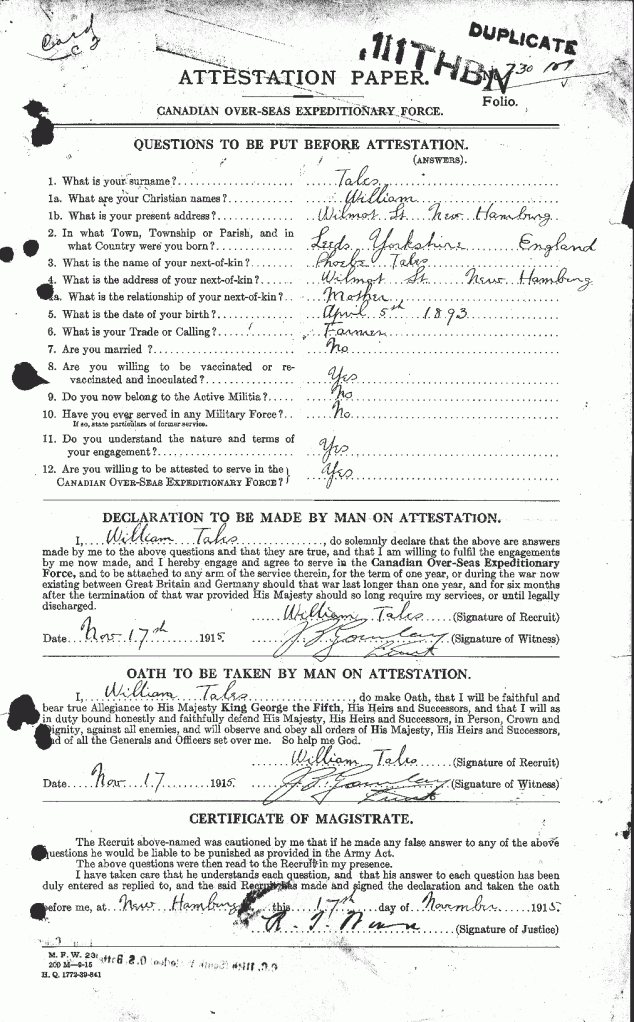 Card
C 2
DUPLICATE
111TH BN
No. 730
Folio.
ATTESTATION PAPER.
CANADIAN OVER-SEAS EXPEDITIONARY FORCE.
QUESTIONS TO BE PUT BEFORE ATTESTATION.
(ANSWERS).
1. What is your surname?.......... Tales
1a. What are your Christian names?.......... William
1b. What is your present address?.......... Wilmot St. New Hamburg
2. In what Town, Township or Parish, and in
what Country were you born?.......... Leeds Yorkshire England
3. What is the name of your next-of-kin?.......... Phoebe Tales
4. What is the address of your next-of-kin?.......... Wilmot St New Hamburg
4a. What is the relationship of your next-of-kin?.......... Mother
5. What is the date of your birth?.......... April 5th 1893
6. What is your Trade or Calling?.......... Farmer
7. Are you married ?.......... No
8. Are you willing to be vaccinated or re-
vaccinated and inoculated?.......... Yes
9. Do you now belong to the Active Militia?.......... No
10. Have you ever served in any Military Force?.. No.
If so, state particulars of former service.
11. Do you understand the nature and terms of
your engagement?.......... Yes
12. Are you willing to be attested to serve in the
CANADIAN OVER-SEAS EXPEDITIONARY FORCE? Yes
DECLARATION TO BE MADE BY MAN ON ATTESTATION.
I, William Tales, do solemnly declare that the above are answers
made by me to the above questions and that they are true, and that I am willing to fulfil the engagements
by me now made, and I hereby engage and agree to serve in the Canadian Over-Seas Expeditionary
Force, and to be attached to any arm of the service therein, for the term of one year, or during the war now
existing between Great Britain and Germany should that war last longer than one year, and for six months
after the termination of that war provided His Majesty should so long require my services, or until legally
discharged.
William Tales (Signature of Recruit)
Date Nov 17th 1915. (Signature of Witness)
Lieut
OATH TO BE TAKEN BY MAN ON ATTESTATION.
I, William Tales, do make Oath, that I will be faithful and
bear true Allegiance to His Majesty King George the Fifth, His Heirs and Successors, and that I will as
in duty bound honestly and faithfully defend His Majesty, His Heirs and Successors, in Person, Crown and
Dignity, against all enemies, and will observe and obey all orders of His Majesty, His Heirs and Successors,
and of all the Generals and Officers set over me. So help me God.
William Tales (Signature of Recruit)
Date Nov. 17 1915. (Signature of Witness)
Lieut
CERTIFICATE OF MAGISTRATE.
The Recruit above-named was cautioned by me that if he made any false answer to any of the above
questions he would be liable to be punished as provided in the Army Act.
The above questions were then read to the Recruit in my presence.
I have taken care that he understands each question, and that his answer to each question has been
duly entered as replied to, and the said Recruit has made and signed the declaration and taken the oath
before me, at New Hamburg this 17th day of November 1915.
(Signature of Justice)
M. F. W. 23.
200 M—9-15
H. Q. 1772-39-841